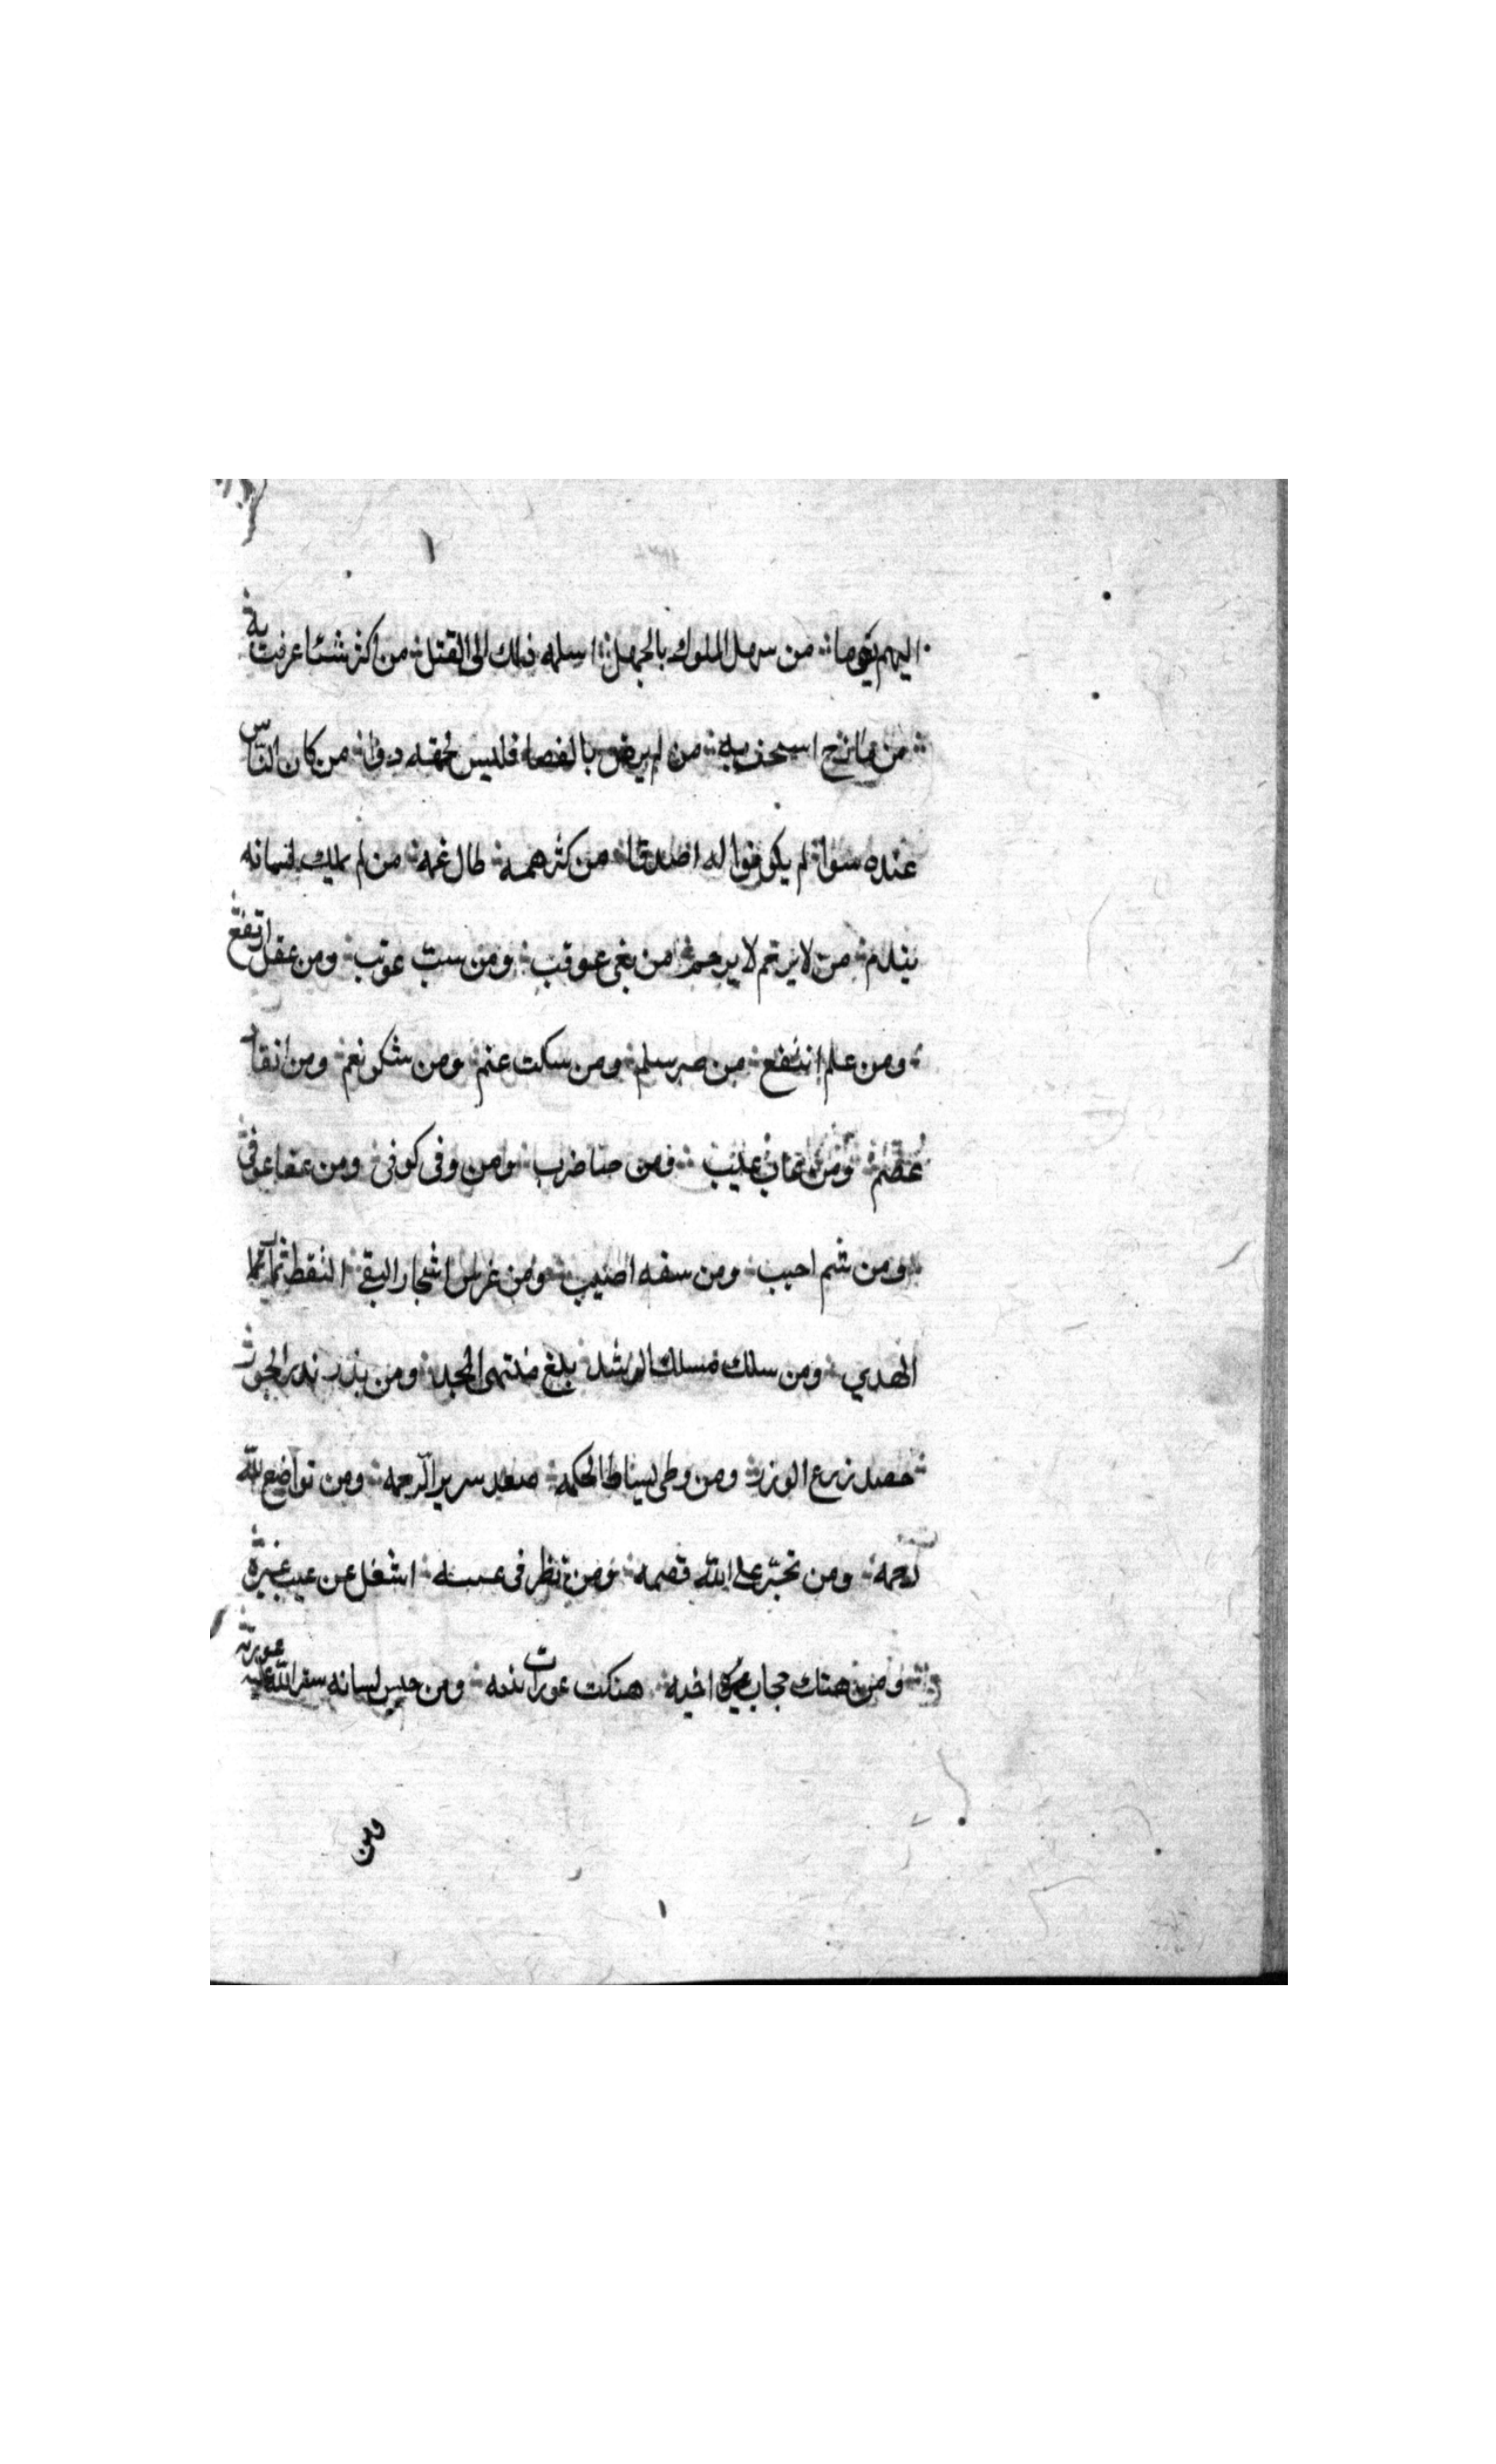 اليهم يوما من سهل الملوك بالجهل اسله ذلك الى القتل من اكثر شئا عرفت به
من مازح استخف به من لم يرض بالقضا فليس لحمقه دوا من كان الناس
عنده سوا لم يكونوا له اصدقا من كثر همه طال غمه من لم يملك لسانه
يندم من لا يرحم لا يرحم من بغى عوقب ومن سب عوتب ومن عقل ارتفع
ومن علم انتفع من صبر سلم ومن سكت غنم ومن شكر نعم ومن اتقا
عصم ومن عاب عيب ومن ضا ضرب ومن وفى كوفى ومن عفا عوفى
ومن شم احيب ومن سفه اصيب ومن غرس اشجار التقى التقط ثمار
الهدي ومن سلك مسلك الرشد بلغ منتهى المجد ومن بذر بذر الجور
حصد زرع الوزر ومن وطى بساط الحكمه صعد سرير الرحمه ومن تواضع لله
رحمه ومن تجبر على الله قصمه ومن نظر فى عيبه اشغل عن عيب غيره
ومن هتك حجاب اخيه هتكت عورات بنيه ومن حبس لسانه ستر الله عليه عورته
ومن